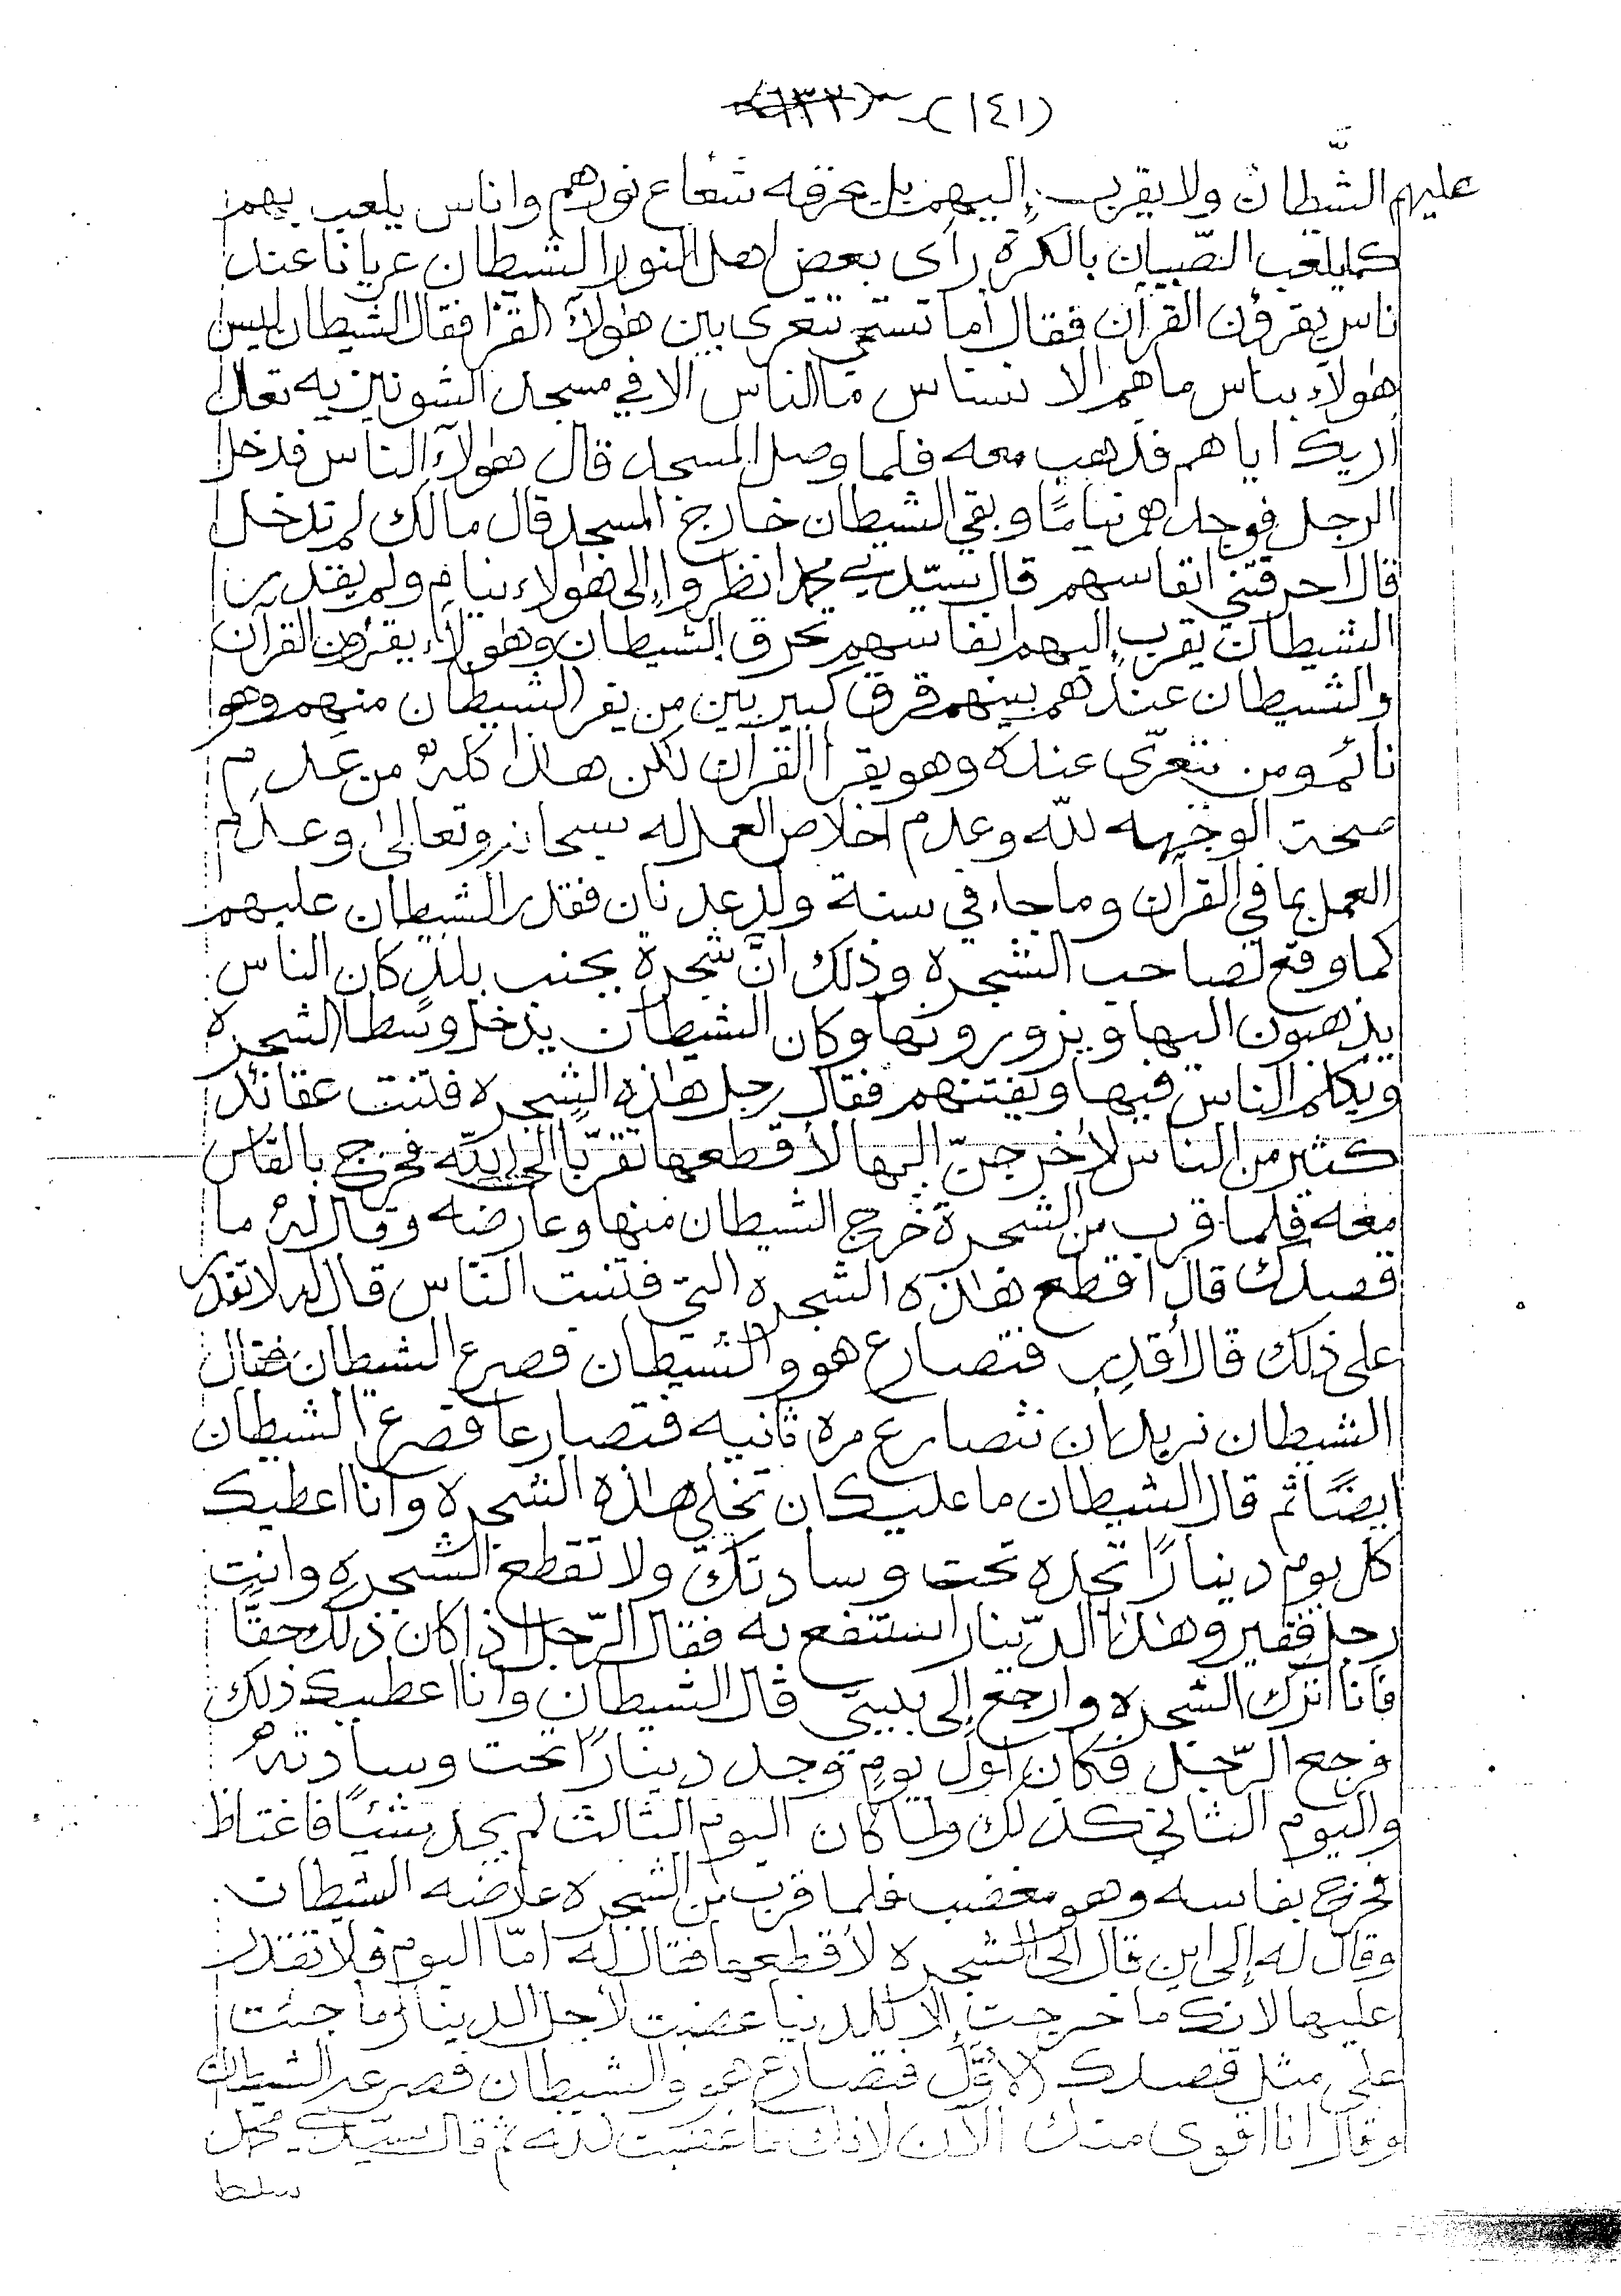 (١٤١) - (١٣٣)
عليهم الشَّيطان ولا يقرب إليهم بل يحرقه شعاع نورهم واناس يلعب بهم
كما يلعب الصّبيان بالكرة رأى بعض اهل النور الشيطان عريانا عند
ناس يقرؤن القرآن فقال أما تستحي تتعرى بين هٰولآء القرّا فقال الشيطان ليس
هٰولآء بناس ما هم إلا نسناس ما الناس الا في مسجد الشونيزيه تعال
اريك اياهم فذهب معه فلما وصل المسجد قال هٰولآء الناس فدخل
الرجل فوجدهم نيامًا وبقي الشيطان خارج المسجد قال مالك لم تدخل
قال احرقتني انفاسهم قال سيّدي محمد انظروا إلى هٰولاء نيام ولم يقدر
الشيطان يقرب إليهم انفاسهم تحرق الشيطان وهٰولآء يقرؤن القرآن
والشيطان عندهم بينهم فرق كبير بين من يفر الشيطان منهم وهو
نائم ومن يتعرّى عنده وهو يقرا القرآن لكن هٰذا كلهُ من عدم
صحة الوجهه للّه وعدم اخلاص العمل له سبحانه وتعالىٰ وعدم
العمل بما في القرآن وما جاء في سنة ولد عدنان فقدر الشيطان عليهم
كما وقع لصاحب الشجره وذلك انَّ شجرة بجنب بلدٍ كان الناس
يذهبون اليها ويزورونها وكان الشيطان يدخل وسط الشجره
ويكلم الناس فيها ويفتنهم فقال رجل هٰذه الشجره فتنت عقائد
كثير من الناس لأخرجنّ إليها لأقطعها تقرّبا الى اللّه فخرج بالفاس
معه فلما قرب من الشجرة خرج الشيطان منها وعارضه وقال لهُ ما
قصدك قال اقطع هٰذه الشجره التي فتنت النّاس قال له لا تقدر
على ذلك قال أقدر فتصارع هو والشيطان فصرع الشيطان فقال
الشيطان نريد ان نتصارع مره ثانيه فتصارعا فصرع الشيطان
ايضًا ثم قال الشيطان ما عليك ان تخلي هٰذه الشجره وانا اعطيك
كل يوم دينارًا تجده تحت وسادتك ولا تقطع الشجره وانت
رجل فقير وهٰذا الدّينار استنفع به فقال الرّجل اذا كان ذلك حقًّا
فأنا اترك الشجره وارجع إلى بيتي قال الشيطان وانا اعطيك ذلك
فرجع الرّجل فكان اول يومٍ وجد دينارًا تحت وسادتهُ
واليوم الثاني كذلك ولمّا كان اليوم الثالث لم يجد شئيًا فاغتاظ
فخرج بفاسه وهو مغضب فلما قرب من الشجره عارضه الشيطان
وقال له إلى اين قال الى الشجره لأقطعها فقال له امّا اليوم فلا تقدر
عليها لانك ما خرجت إلا للدنيا غضبت لأجل الدينار وما جئت
على مثل قصدك الأوّل فتصارع هو والشيطان فصرعه الشيطان
وقال انا اقوى منك الآن لانك ما غضبت لله ثم قال سيّدي محمد
سلط